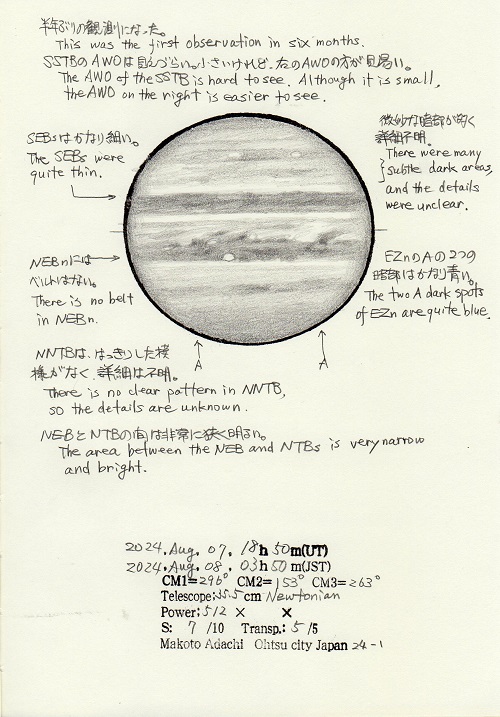 半年ぶりの観測になった。
This was the first observation in six months.
SSTBのAWOは見えづらい。小さいけれど、右のAWOの方が見易い。
The AWO of the SSTB is hard to see. Although it is small,
the AWO on the right is easier to see.
SEBsはかなり細い。
The SEBs were
quite thin.
微妙な暗部が多く
詳細不明。
There were many
subtle dark areas,
and the details
were unclear.
NEBnには
ベルトはない。
There is no belt
in NEBn.
EZnのAの2つの
暗部はかなり青い。
The two A dark spots
of EZn are quite blue.
A
A
NNTBは、はっきりした模
様がなく、詳細は不明。
There is no clear pattern in NNTB,
so the details are unknown.
NEBとNTBの間は非常に狭く明るい。
The area between the NEB and NTBs is very narrow
and bright.
2024. Aug. 07. 18h 50m(UT)
2024. Aug. 08. 03h 50m(JST)
CM1=296° CM2=153° CM3=263°
Telescope; 35.5cm Newtonian
Power; 512 × ×
S: 7 /10 Transp.: 5 /5
Makoto Adachi Ohtsu city Japan 24-1